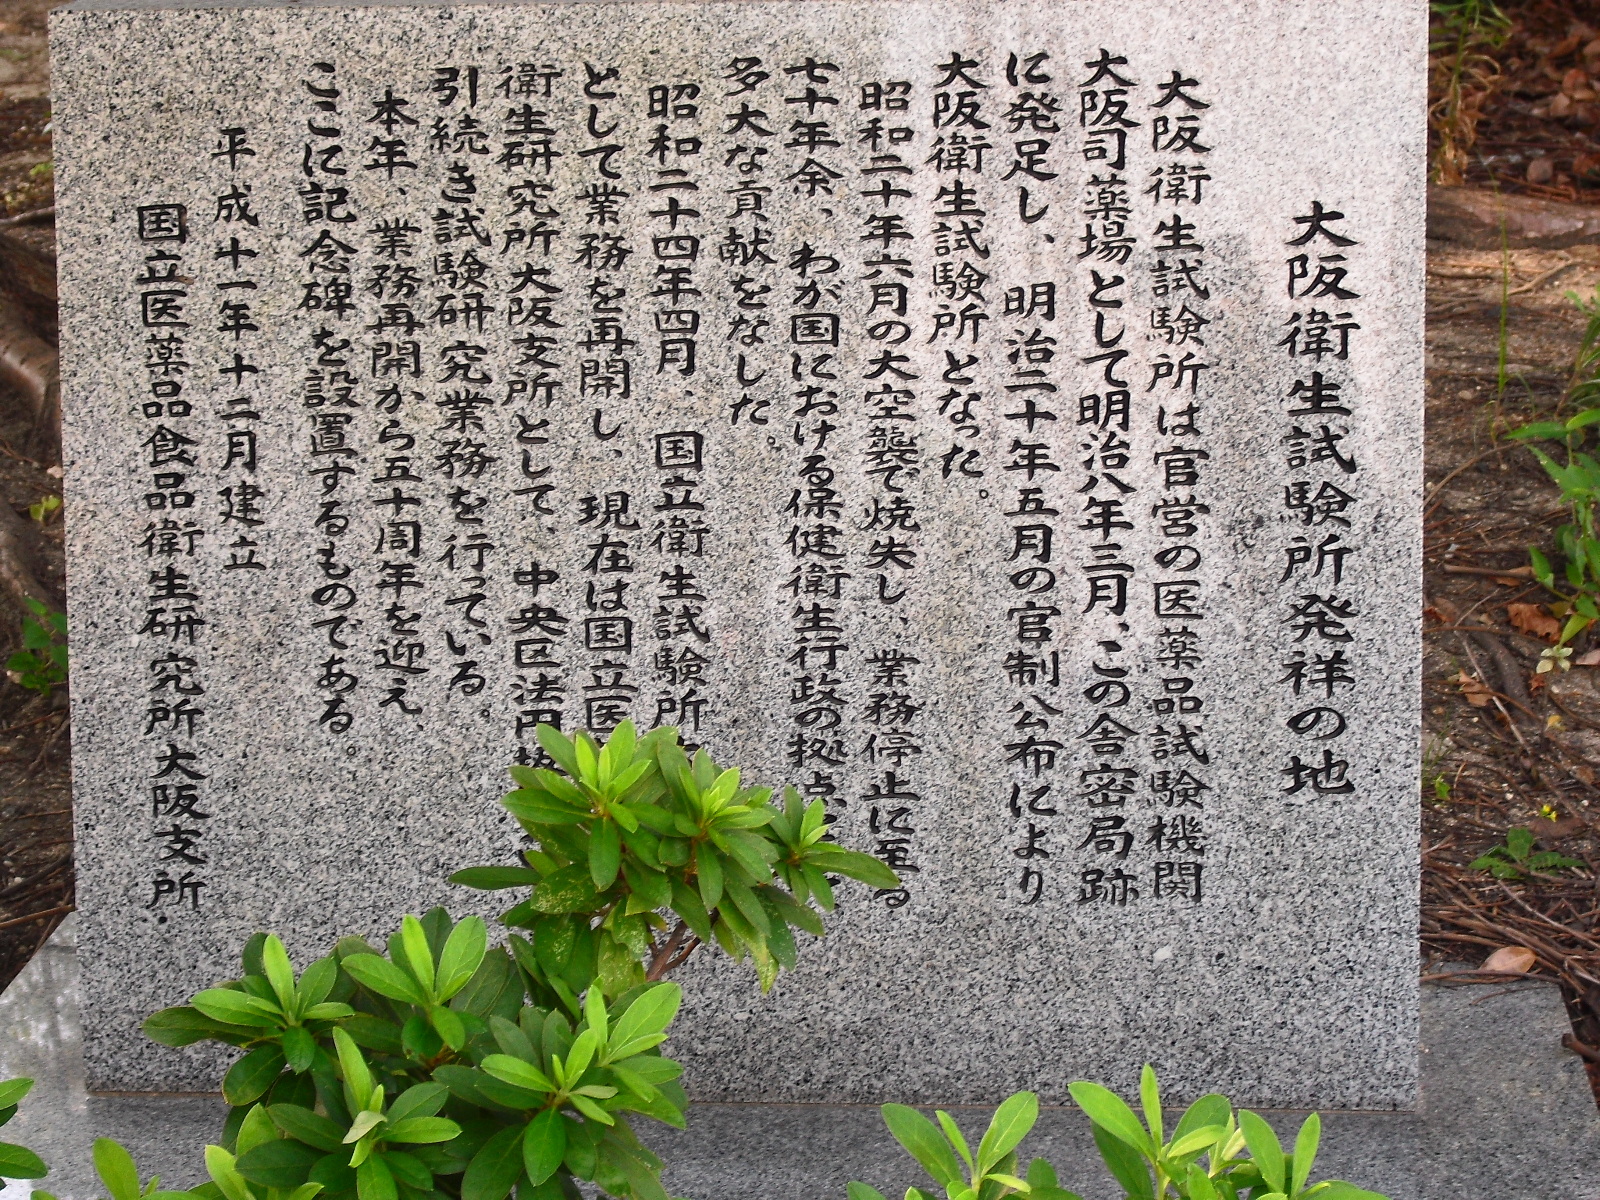 大阪衛生試験所発祥の地
大阪衛生試験所は官営の医薬品試験機関
大阪司薬場として明治八年三月、この舎密局跡
に発足し、明治二十年五月の官制公布により
大阪衛生試験所となった。
昭和二十年六月の大空襲で焼失し、業務停止に至る
七十年余、わが国における保健衛生行政の拠点
多大な貢献をなした。
昭和二十四年四月、国立衛生試験所
として業務を再開し、現在は国立医
衛生研究所大阪支所として、中央区法円
引続き試験研究業務を行っている。
本年、業務再開から五十周年を迎え、
ここに記念碑を設置するものである。
平成十一年十二月建立
国立医薬品食品衛生研究所大阪支所